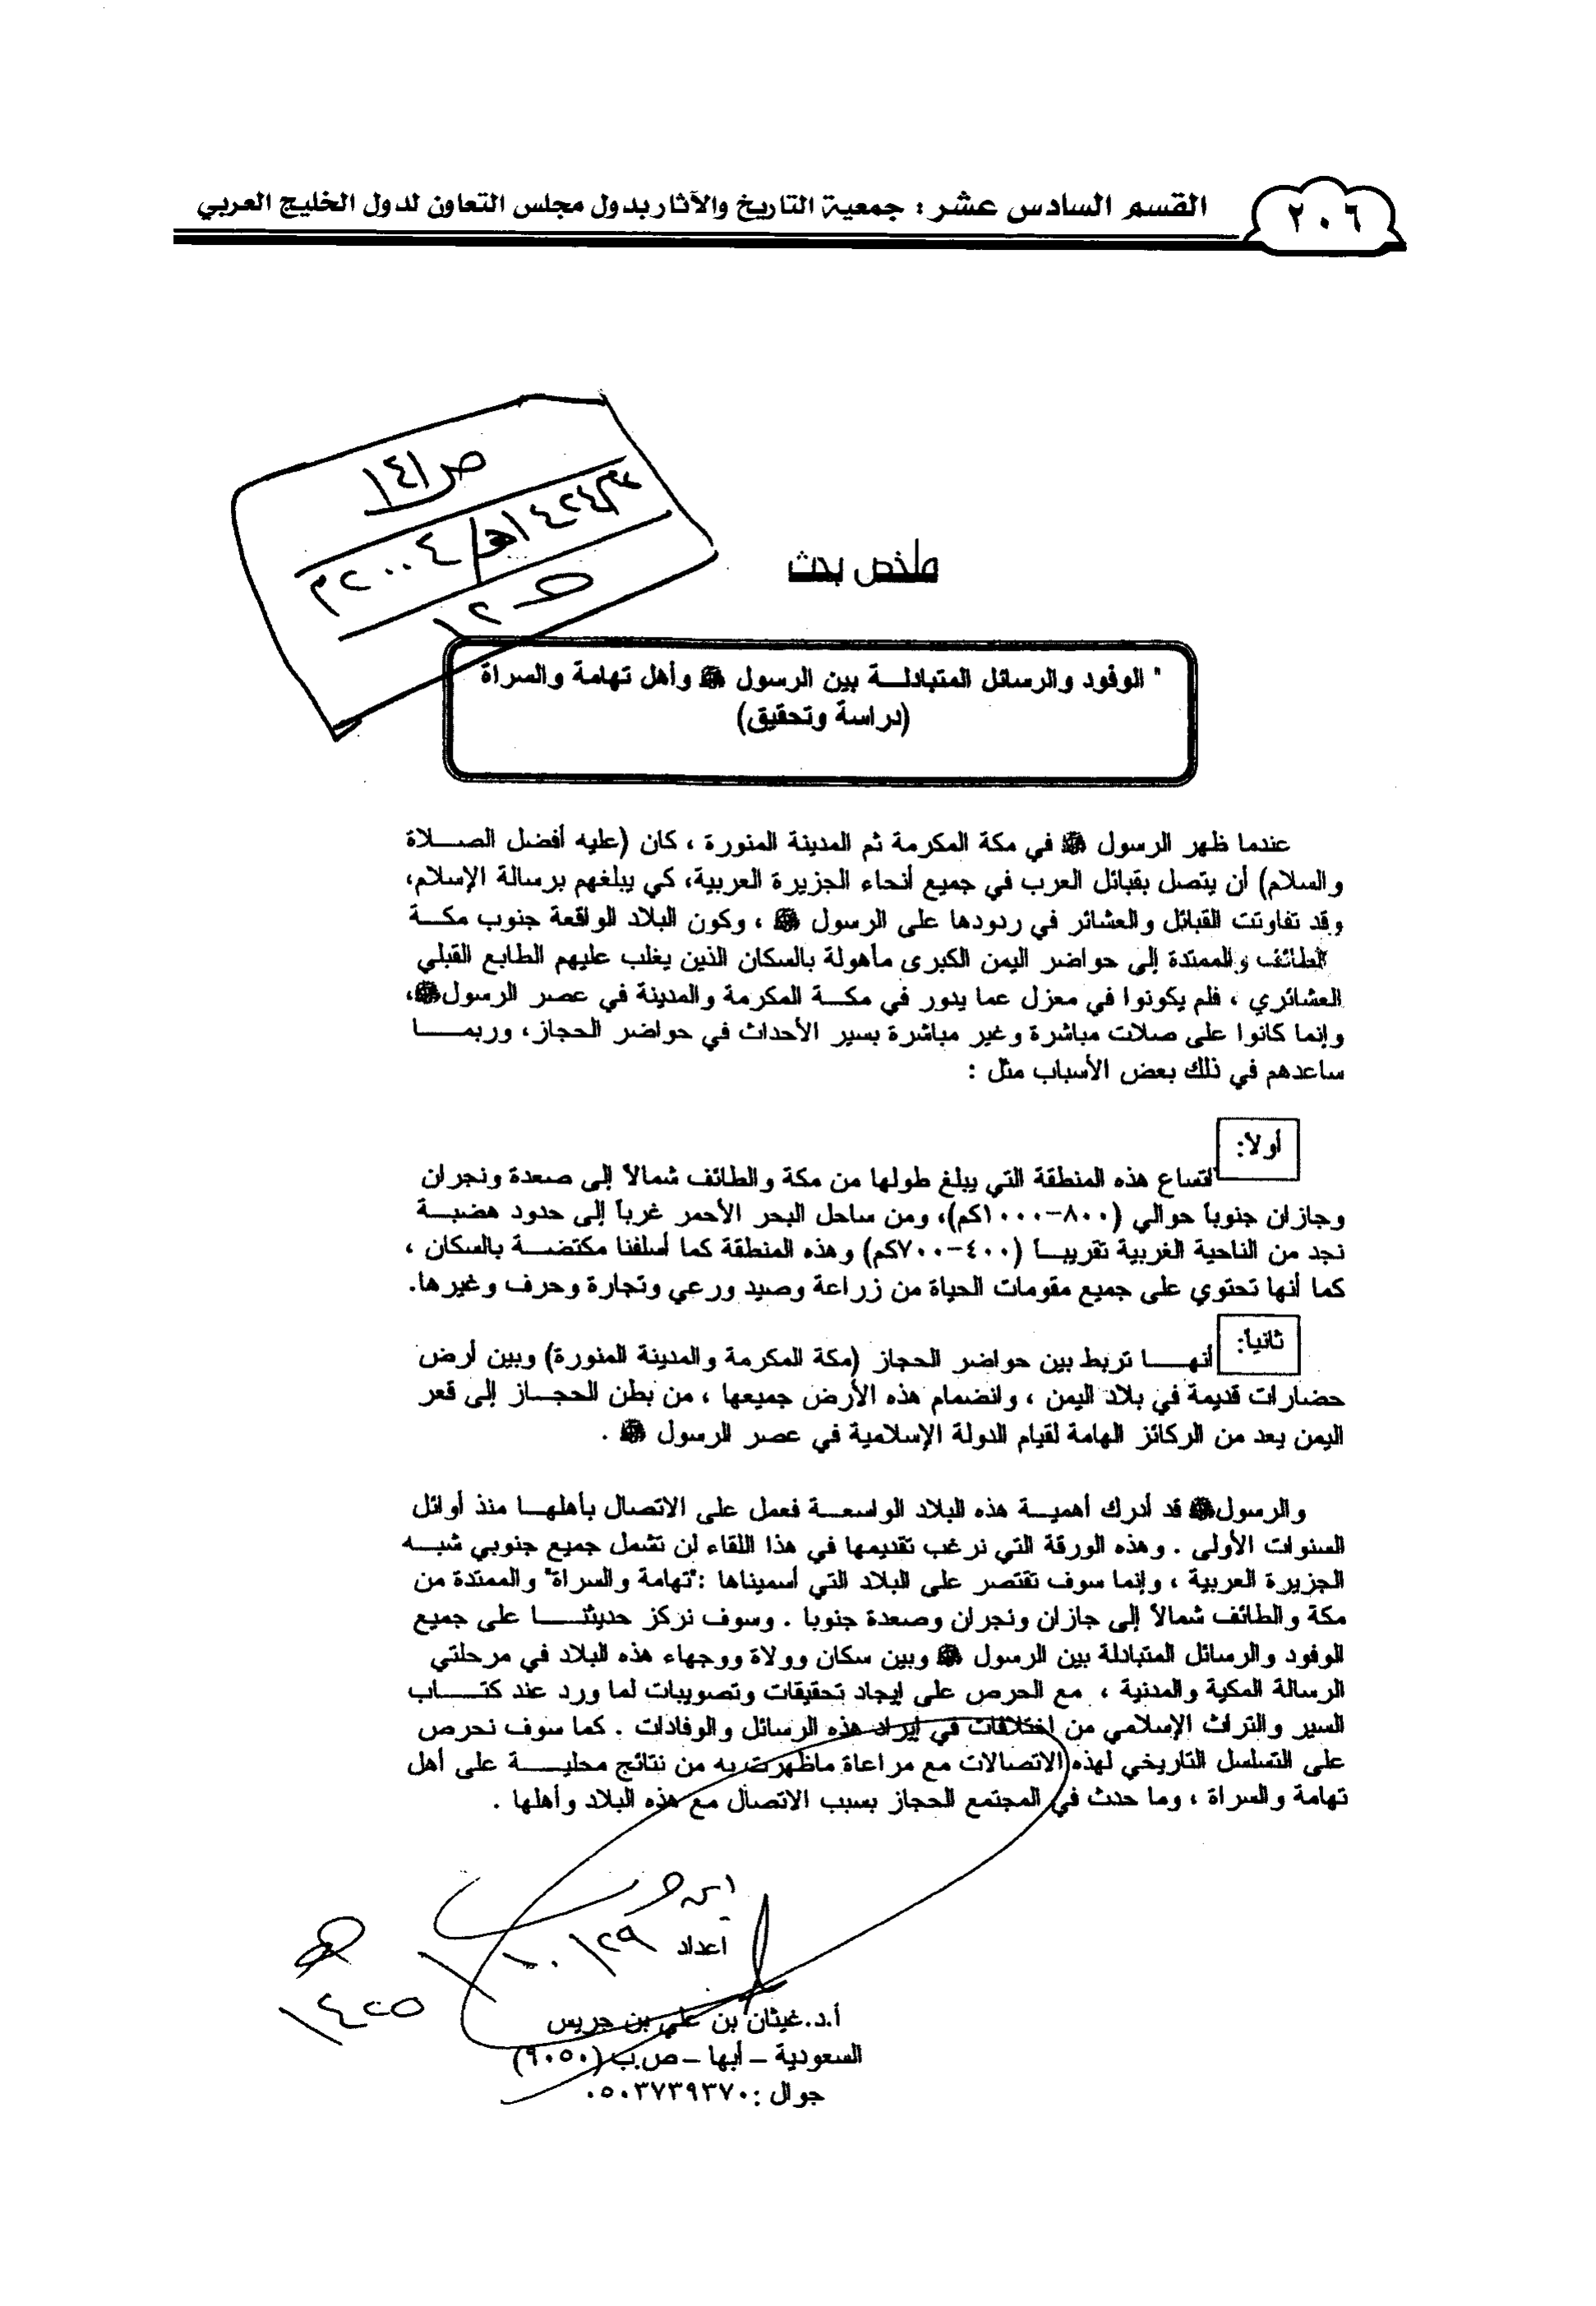 ٢٠٦
القسم السادس عشر: جمعية التاريخ والآثار بدول مجلس التعاون لدول الخليج العربي
ص١٤١
١٤٢٤هـ/٢٠٠٤م
ملخص بحث
" الوفود والرسائل المتبادلـــة بين الرسول ﷺ وأهل تهامة والسراة
(دراسة وتحقيق)
عندما ظهر الرسول ﷺ في مكة المكرمة ثم المدينة المنورة ، كان (عليه أفضل الصـــلاة
والسلام) أن يتصل بقبائل العرب في جميع أنحاء الجزيرة العربية، كي يبلغهم برسالة الإسلام،
وقد تفاوتت القبائل والعشائر في ردودها على الرسول ﷺ ، وكون البلاد الواقعة جنوب مكـــة
الطائف والممتدة إلى حواضر اليمن الكبرى مأهولة بالسكان الذين يغلب عليهم الطابع القبلي
العشائري ، فلم يكونوا في معزل عما يدور في مكـــة المكرمة والمدينة في عصر الرسولﷺ،
وإنما كانوا على صلات مباشرة وغير مباشرة بسير الأحداث في حواضر الحجاز، وربمـــا
ساعدهم في ذلك بعض الأسباب مثل :
أولاً:
اتساع هذه المنطقة التي يبلغ طولها من مكة والطائف شمالاً إلى صعدة ونجران
وجازان جنوباً حوالي (٨٠٠-١٠٠٠كم)، ومن ساحل البحر الأحمر غرباً إلى حدود هضبـــة
نجد من الناحية الغربية تقريبـــاً (٤٠٠-٧٠٠كم) وهذه المنطقة كما أسلفنا مكتضـــة بالسكان ،
كما أنها تحتوي على جميع مقومات الحياة من زراعة وصيد ورعي وتجارة وحرف وغيرها.
ثانياً:
أنهـــا تربط بين حواضر الحجاز (مكة المكرمة والمدينة المنورة) وبين أرض
حضارات قديمة في بلاد اليمن ، وانضمام هذه الأرض جميعها ، من بطن الحجـــاز إلى قعر
اليمن يعد من الركائز الهامة لقيام الدولة الإسلامية في عصر الرسول ﷺ .
والرسولﷺ قد أدرك أهميـــة هذه البلاد الواسعـــة فعمل على الاتصال بأهلهـــا منذ أوائل
السنوات الأولى . وهذه الورقة التي نرغب تقديمها في هذا اللقاء لن تشمل جميع جنوبي شبـــه
الجزيرة العربية ، وإنما سوف تقتصر على البلاد التي أسميناها :"تهامة والسراة" والممتدة من
مكة والطائف شمالاً إلى جازان ونجران وصعدة جنوبا . وسوف نركز حديثنـــا على جميع
الوفود والرسائل المتبادلة بين الرسول ﷺ وبين سكان وولاة ووجهاء هذه البلاد في مرحلتي
الرسالة المكية والمدنية ، مع الحرص على إيجاد تحقيقات وتصويبات لما ورد عند كتـــاب
السير والتراث الإسلامي من اختلافات في إيراد هذه الرسائل والوفادات . كما سوف نحرص
على التسلسل التاريخي لهذه الاتصالات مع مراعاة ماظهرت به من نتائج محليـــة على أهل
تهامة والسراة ، وما حدث في المجتمع الحجاز بسبب الاتصال مع هذه البلاد وأهلها .
اعداد
أ.د.غيثان بن علي بن جريس
السعودية – أبها – ص.ب (٩٠٥٠)
جوال :٠٥٠٣٧٣٩٣٧٠